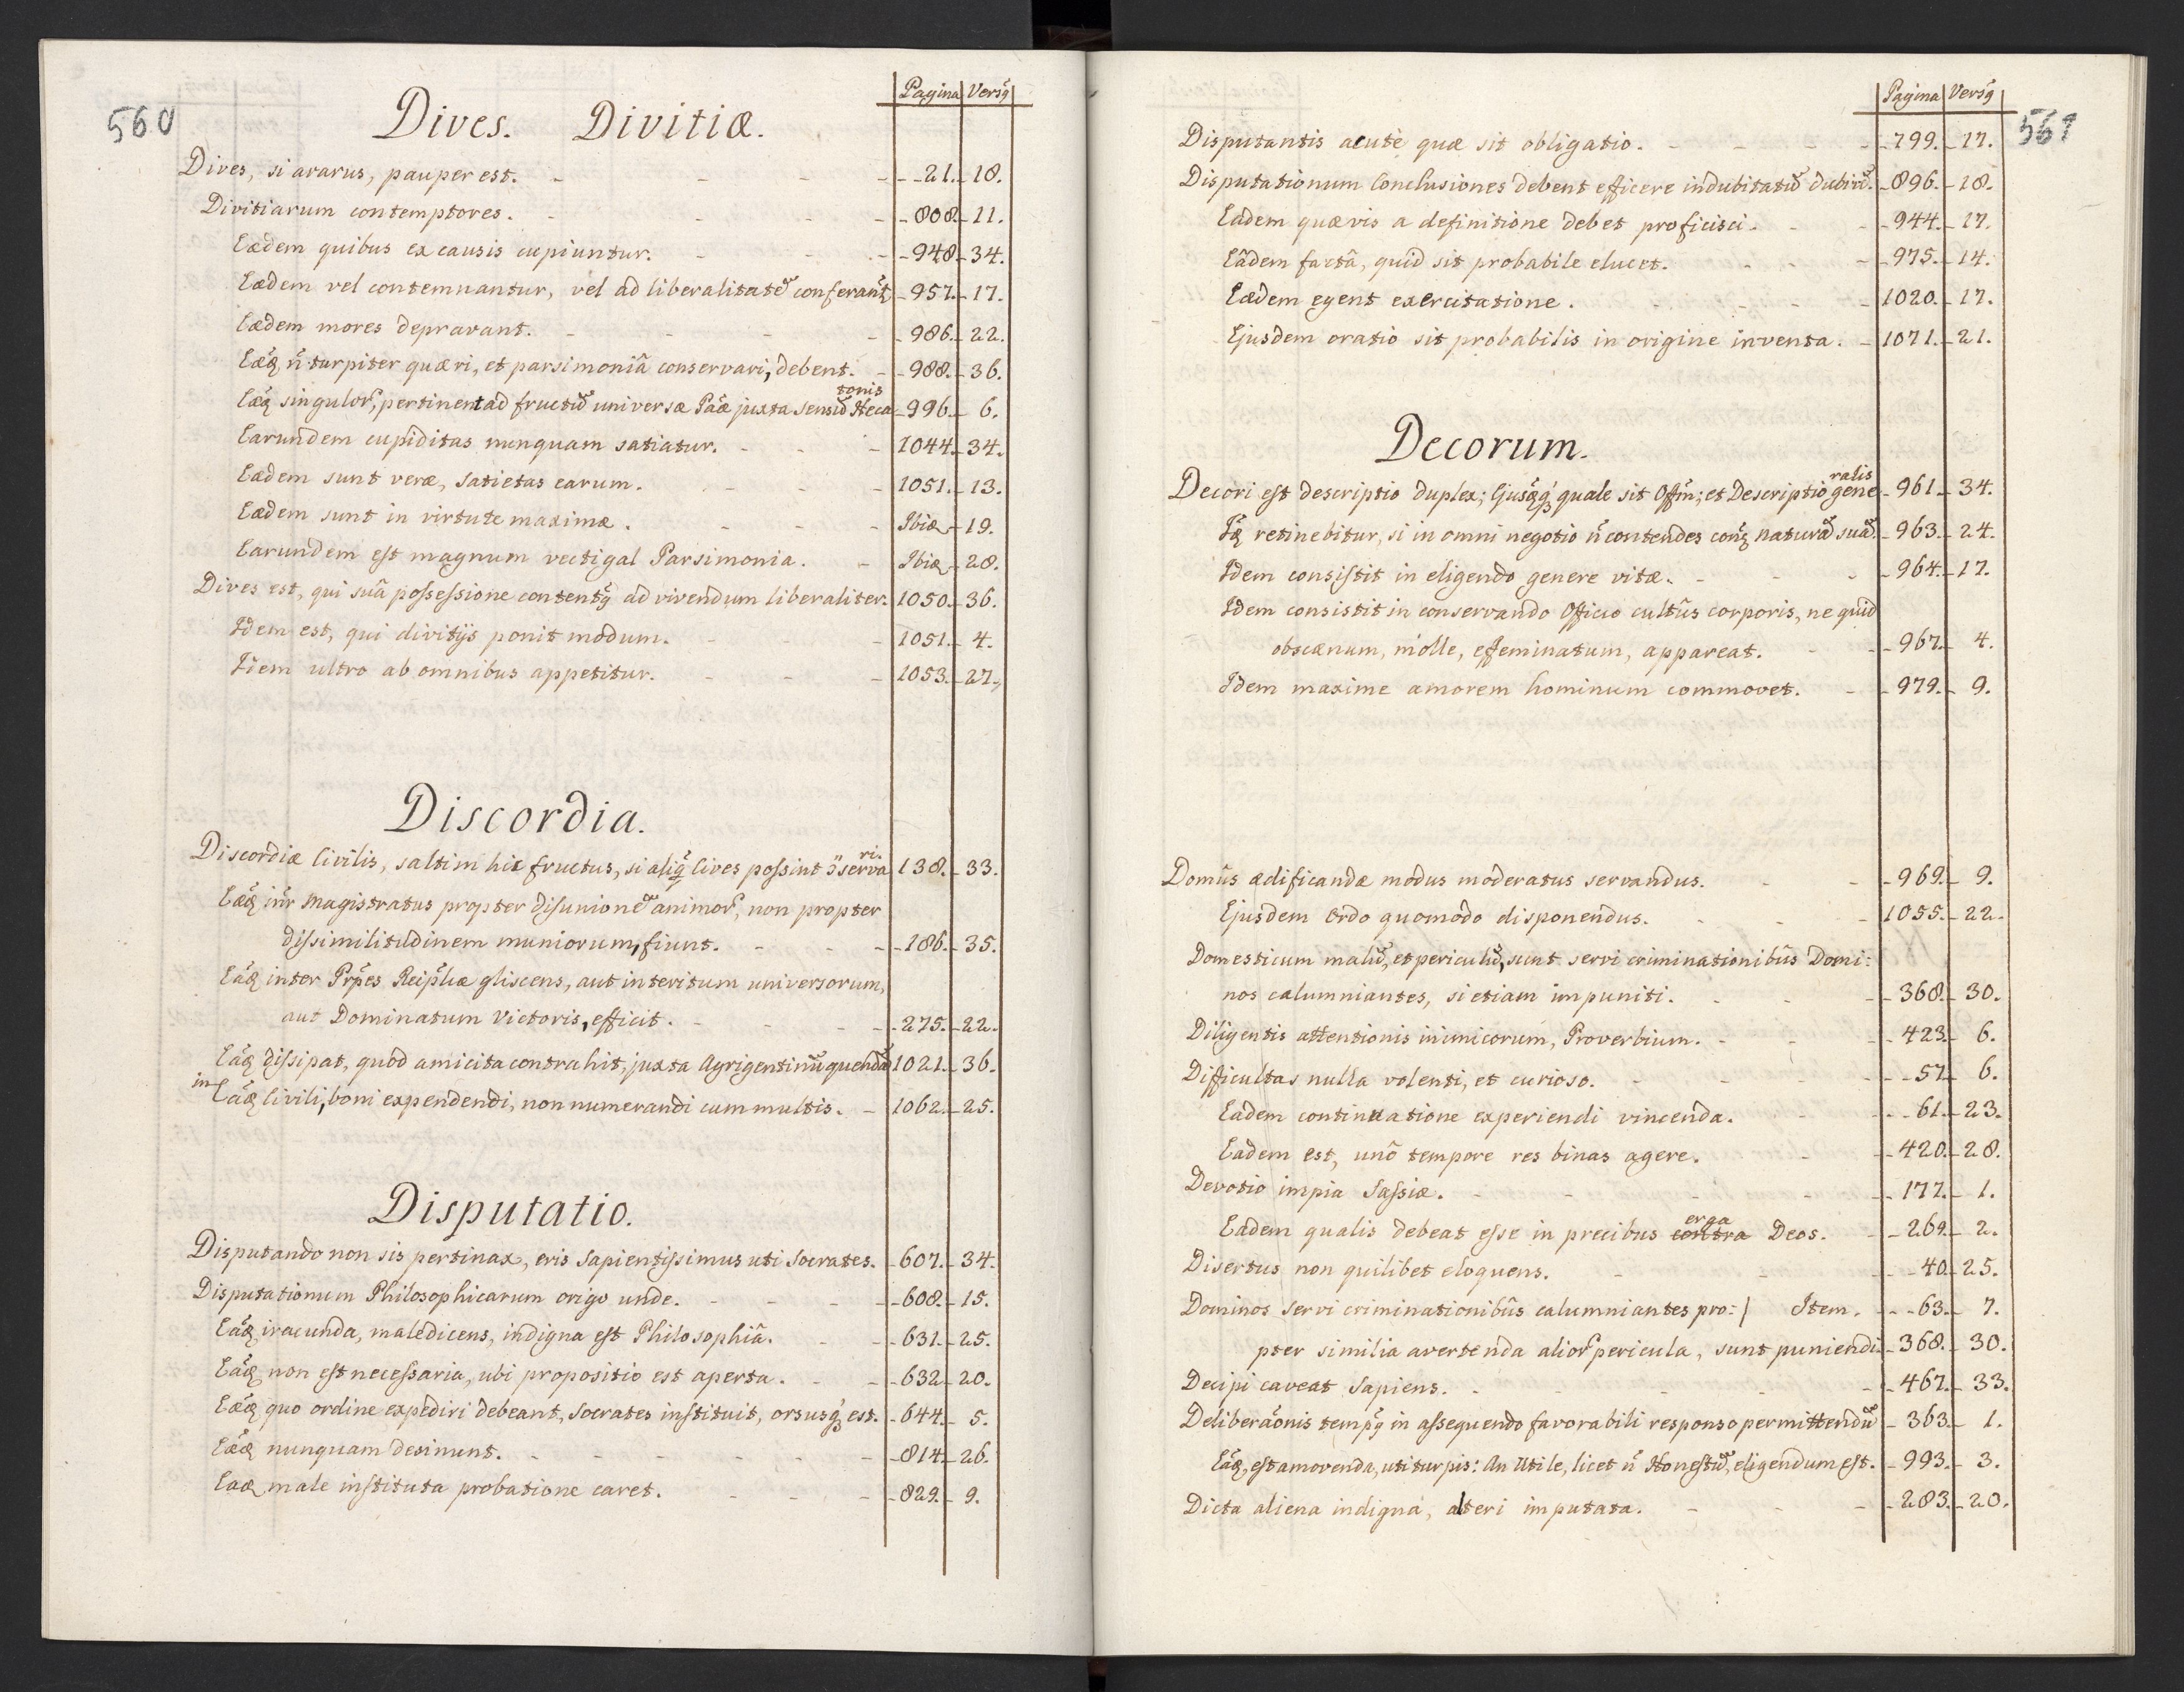 560
Pagina Versq
Dives. Divitiæ.
Dives, si avarus, pauper est. - - - - 21. - 18.
Divitiarum contemptores. - - - - 808. - 11.
Eædem quibus ex causis cupiuntur. - - - 948. - 34.
Eædem vel contemnantur, vel ad liberalitatẽ conferant 957. - 17.
Eædem mores depravant. - - - - 986. - 22.
Eæq̃, ñ turpiter quæri, et parsimoniâ conservari, debent. - 988. - 36.
tonis
Eæq̃ singulor, pertinent ad fructũ universæ Pãæ juxta sensũ Heca 996. - 6.
Earundem cupiditas nunquam satiatur. - - - 1044. - 34.
Eædem sunt veræ, satietas earum. - - - 1051. - 13.
Eædem sunt in virtute maximæ. - - - Ibiđ - 19.
Earundem est magnum vectigal Parsimonia. - Ibiđ - 28.
Dives est, qui suâ possessione contentq ad vivendum liberaliter. 1050. - 36.
Idem est, qui divitijs ponit modum. - - - 1051. - 4.
Idem ultro ab omnibus appetitur. - - - 1053. - 27.
Discordia.
ri.
Discordiæ Civilis, saltim hic fructus, si aliq̃ Cives possint õserva 138. - 33.
Eæq̃ intr Magistratus propter disunionẽ animor, non propter
dissimilitudinem muniorum, fiunt. - - - 186. - 35.
Eãq̃ inter Prpẽs Reiplicæ gliscens, aut interitum universorum,
aut Dominatum Victoris, efficit. - - - 275. - 22.
Eãq̃ dissipat, quod amicita contrahit, juxta Agrigentinũ quendã 1021. - 36.
in Eãq̃ Civili, boni expendendi, non numerandi cum multis. - 1062. - 25.
Disputatio.
Disputando non sis pertinax, eris Sapientissimus uti Socrates. 607. - 34.
Disputationum Philosophicarum origo unde. - - - 608. - 15.
Eãq̃ iracunda, maledicens, indigna est Philosophiâ. - - 631. - 25.
Eãq̃ non est necessaria, ubi propositio est aperta. - - 632 - 20.
Eæq̃ quo ordine expediri debeant, Socrates instituit, orsusq; est. 644. - 5.
Eæq̃ nunquam desinunt. - - - - - 814. - 26.
Eaq̃ male instituta probatione caret. - - - 829. - 9.
561
Pagina Versq
Disputantis acutè quæ sit obligatio. - - - 799. - 17.
Disputationum Conclusiones debent efficere indubitatũ dubiũ. 896. - 18.
Eadem quævis a definitione debet proficisci. - - 944. - 17.
Eâdem factâ, quid sit probabile elucet. - - - 975. - 14.
Eædem egent exercitatione. - - - - 1020. - 17.
Ejusdem oratio sit probabilis in origine inventa. - 1071. - 21.
Decorum.
ralis
Decori est descriptio duplex; Ejusq̃q; quale sit Offñ; et Descriptio gene 961. - 34.
Iq̃ retinebitur, si in omni negotio ñ contendes conq̃ naturã suã. 963. - 24.
Idem consistit in eligendo genere vitæ. - - - 964. - 17.
Idem consistit in conservando Officio cultûs corporis, ne quid
obscænum, molle, effeminatum, appareat. - - 967. - 4.
Idem maxime amorem hominum commovet. - - 979. - 9.
Domûs ædificandæ modus moderatus servandus. - - 969. - 9.
Ejusdem Ordo quomodo disponendus. - - - 1055. - 22.
Domesticum malũ, et periculũ, sunt servi criminationibûs Domi:
nos calumniantes, si etiam impuniti. - - - 368. - 30.
Diligentis attentionis inimicorum, Proverbium. - - - 423. - 6.
Difficultas nulla volenti, et curioso. - - - - 57. - 6.
Eadem continuatione experiendi vincenda. - - - 61. - 23.
Eadem est, unô tempore res binas agere. - - 420. - 28.
Devotio impia Sassiæ. - - - - - 177. - 1.
erga
Eadem qualis debeat esse in precibus contra Deos. - 269. - 2.
Disertus non quilibet eloquens. - - - - 40. - 25.
Dominos servi criminationibûs calumniantes pro: Item. - - 63. - 7.
pter similia avertenda alior pericula, sunt puniendi 368. - 30.
Decipi caveat Sapiens. - - - - - 467. - 33.
Deliberãonis tempq̃ in assequendo favorabili responso permittendũ 363. - 1.
Eãq̃, est amovenda, uti turpis: An Utile, licet ñ Honestũ, eligendum est. 993. - 3.
Dicta aliena indigna, alteri imputata. - - - 283. - 20.